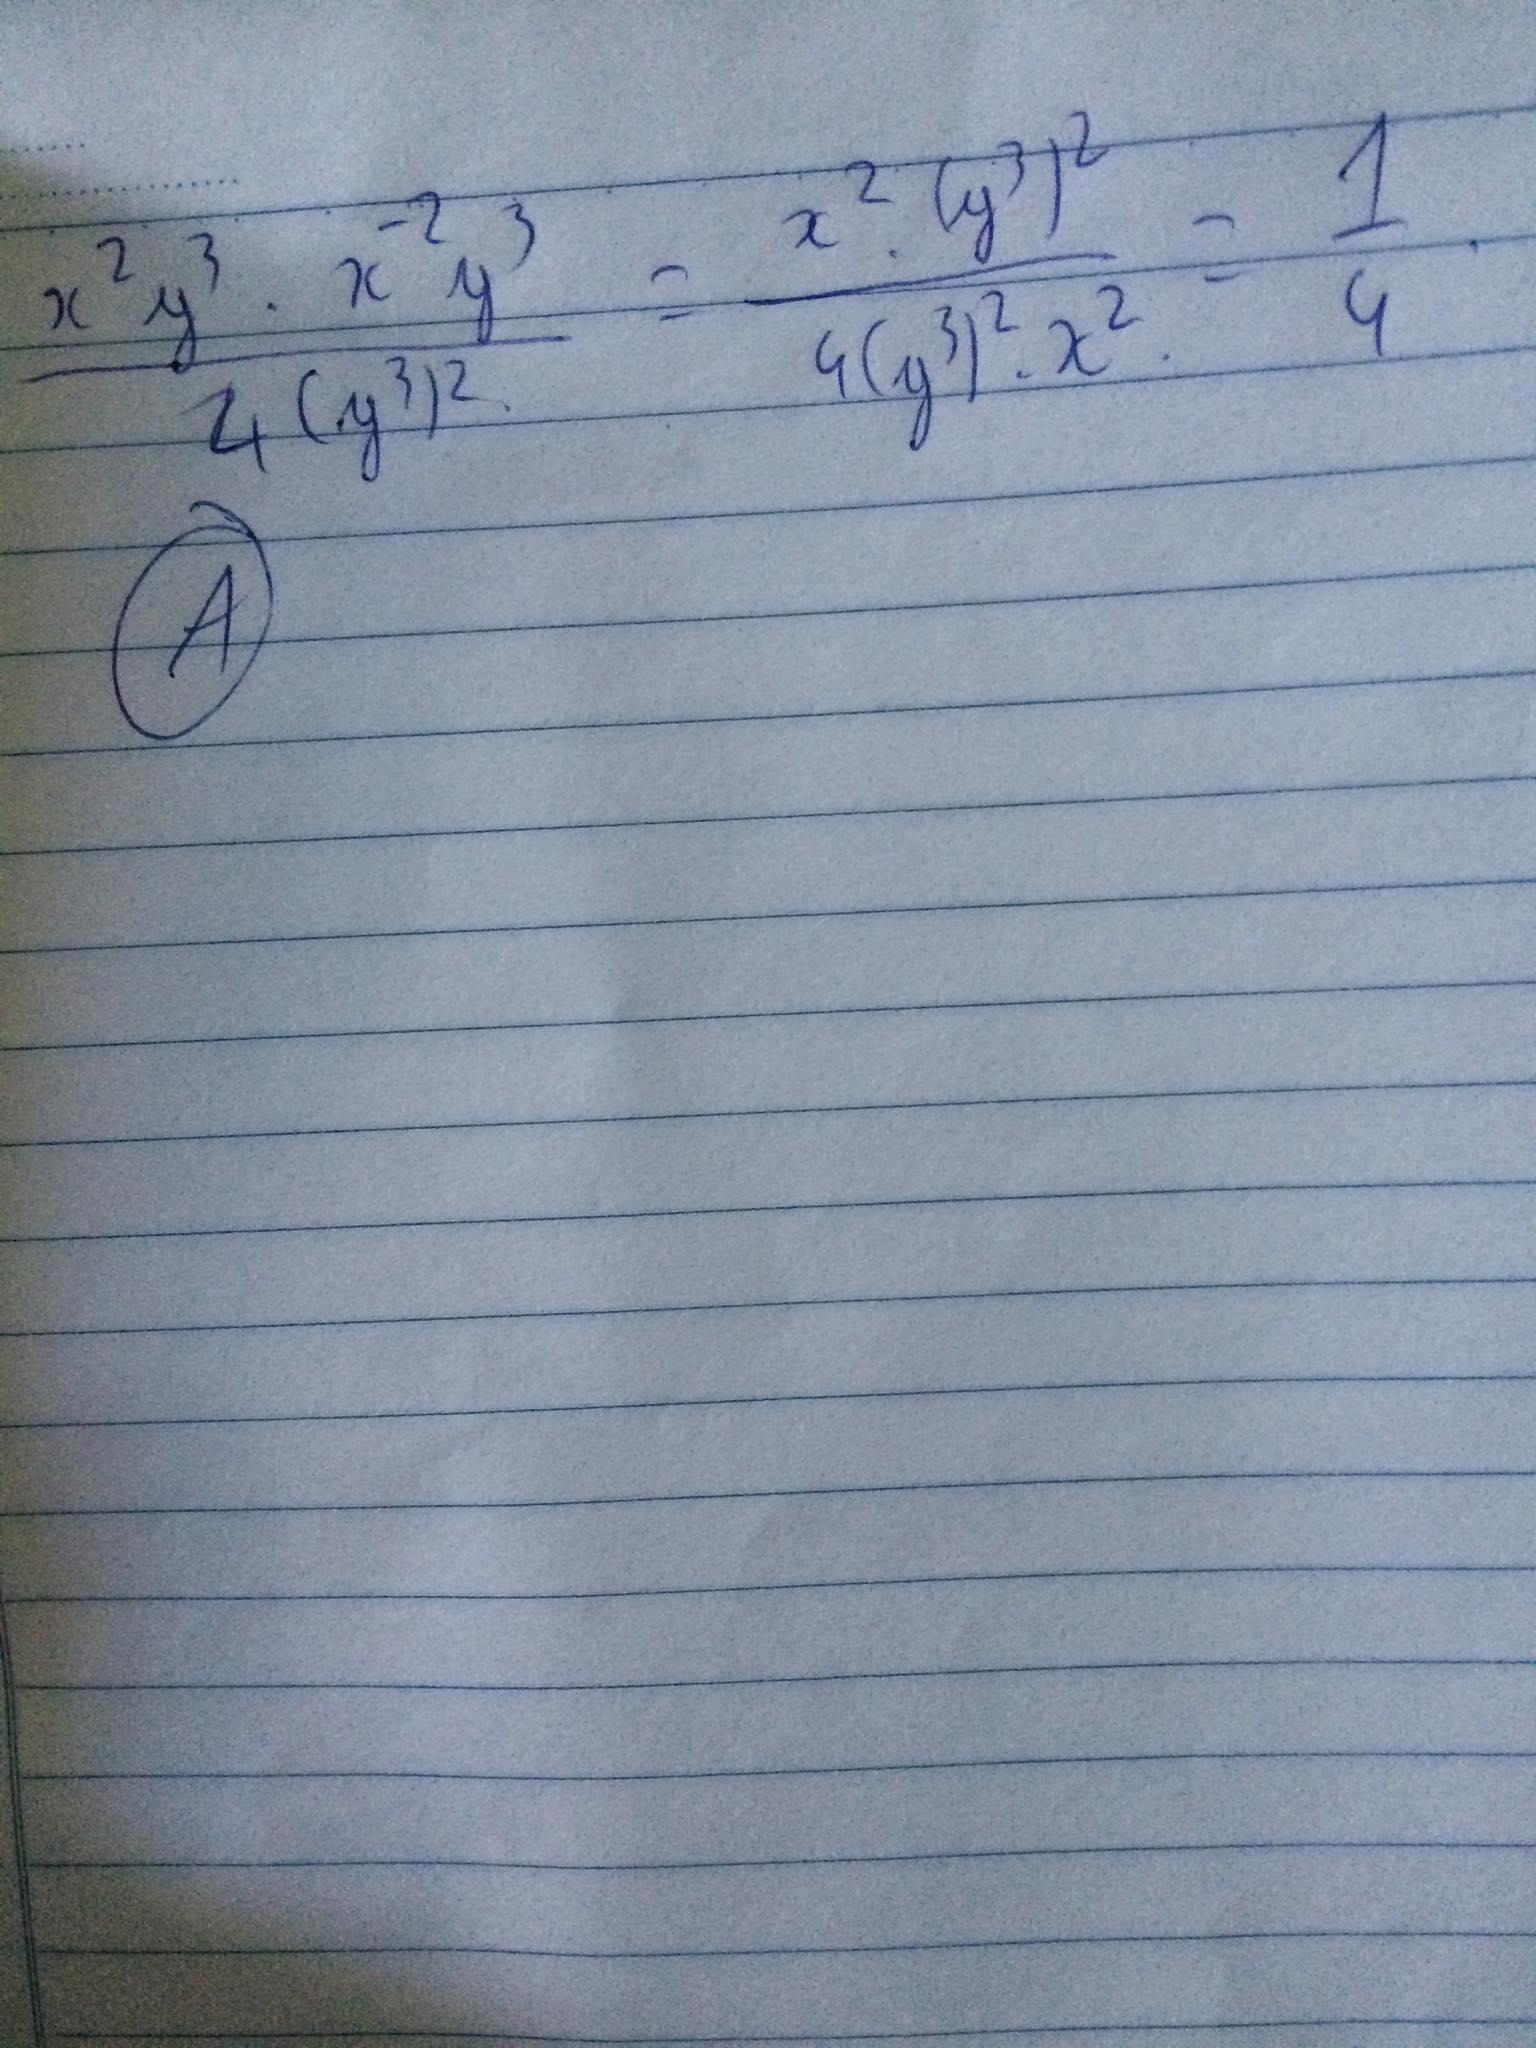 x² y³ . x⁻² y³ / 4 (y³)² . = x² . (y³)² / 4 (y³)² . x² . = 1 / 4 .
A